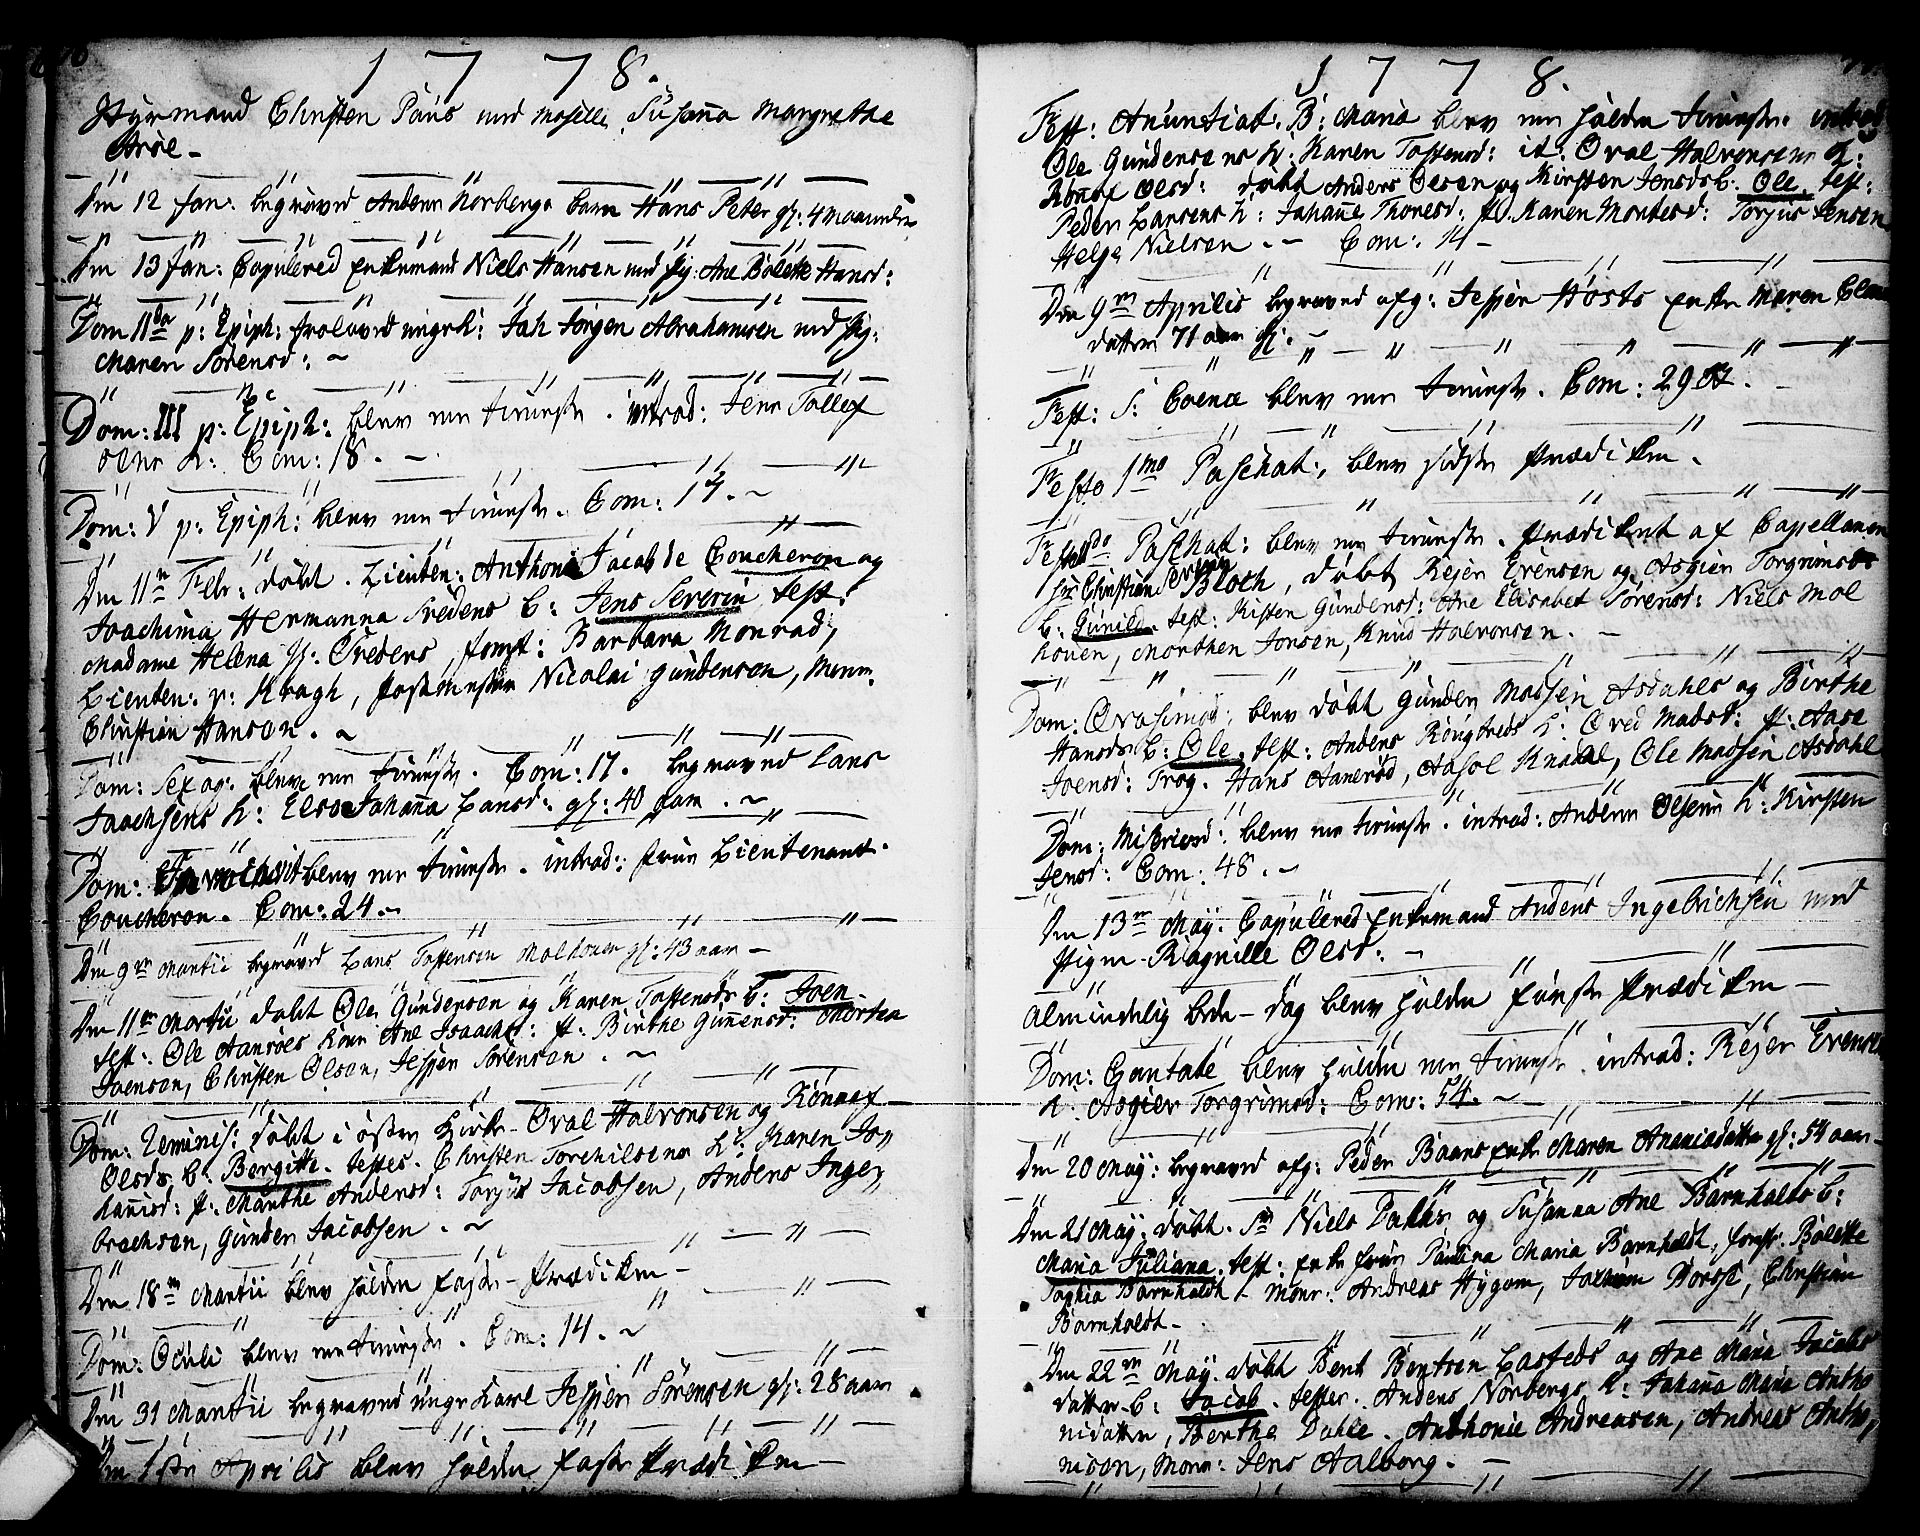 1 7 7 8.
Styrmand Christen Paus med Moselle Susanna Margrethe
Den 12 Jan: begraved Anders Norbergs barn Hans Peter gl: 4 maaneder
Den 13 Jan: Copulered Enkemand Niels Hansen med Pig: Ane Bolette Hansd:
Dom II p: Epiph: troloved ungk: Jah Jørgen Abrahamsen med Pig:
Maren Sørensd: ~
Dom: III p: Epiph: blev men tieneste. introd: Jens Tollef
sens k: Com: 18. -
Dom: V p: Epiph: blev men tieneste. Com: 17. ~
Den 11te Febr: døbt. Lieuten: Anthoni Jacob de Coucheron og
Joachima Hermanna Predens b: Jens Severin test:
Madame Helena Sl: Predens, Jomf: Barbara Monrad,
Lieuten: v: Kragh, Postmester Nicolai Gundersen, Monr.
Christian Hansen. ~
Dom: Sexag: blev men tieneste. Com: 17. begraved Lars
Isachsens k: Elsa Johanna Larsd: gl: 40 aar. ~
Dom: Invocavit blev men tieneste. introd: frue Lieutenant
Coucheron. Com: 24. ~
Den 9de Martii begraved Lars Tostensen Molhouen gl: 43 aar -
Den 11te Martii døbt Ole Gundersen og Karen Tostensds b: Joen
test: Ole Aanrøes kone Ane Isaachsd: p: Birthe Gunnersd: Morten
Joensen, Christen Olsen, Jesper Sørensen. ~
Dom: Reminis: døbt i østre Kirke Oval Halvorsen og Rønnof
Olsds b: Bergitte. testes. Christen Torchilsens k: Karen Jo
hannisd: p: Marthe Andersd: Torjus Jacobsen, Anders Inge
brechsen, Gunder Jacobsen. ~
Den 18de Martii blev holden faste-Prædiken -
Dom: Oculi blev men tieneste. Com: 14. ~
Den 31 Martii begraved unge Karl Jesper Sørensen gl: 28 aar
Den 1ste Aprilis blev holden faste Prædiken -
1 7 7 8.
Fest: Anuntiat: B: Maria blev men holden tieneste. introd
Ole Gundersens k: Karen Tostensd: it: Oval Halvorsens k:
Rønnof Olsd: døbt Anders Olsen og Kirsten Jensds b: Ole. test:
Peder Larsens k: Johanne Thoresd: p: Karen Mortesd: Torjus Jensen
Helge Nielsen. - Com: 14 -
Den 9de Aprilis begraved afg: Jesper Høsts Enke Maren
datter 71 aar gl. ~
Fest: S: Coenæ blev men tieneste. Com: 29 -
Festo 1mo Paschat:, blev sidste Prædiken.
Festo IIdo Paschat: blev men tieneste. Prædiket af Capellanen
Hr Christian Severin Bloch, døbt Rejer Evensen og Asgier Torgrimsds
b: Gunild. test: Kisten Gundersd: Ane Elisabet Sørensd: Niels Mol
houen, Morthen Jonsen, Knud Halvorsen. -
Dom: Qvasimod: blev døbt Gunder Madsen Asdahls og Birthe
Hansds b: Ole. test: Anders Rongtreds k: Ovred Madsd: p: Aase
Joensd: Trog. Hans Aanerød, Aasol Knadal, Ole Madsen Asdahl
Dom: Misericord: blev men tieneste. introd: Anders Olsens k: Kirsten
Jensd: Com: 48. ~
Den 13de Maij. Copulered Enkemand Anders Ingebrichsen med
Pigen Ragnille Olsd. -
Almindelig bede-dag blev holden første Prædiken -
Dom: Cantate blev holden men tieneste. introd: Rejer Evensens
k. Asgier Torgrimsd: Com: 54. ~
Den 20 Maij: begraved afg: Peder Baans Enke Maren Ananiasdatter gl: 54 aar -
Den 21 Maij. døbt. Sr Niels Dahls og Susanna Ane Barnholts b:
Maria Juliana. test: Enke frue Paulina Maria Barnholdt, Jomfr. Bolette
Sophia Barnholdt - Monr: Andreas Hygom, Jochum Borse, Christian
Barnholdt -
Den 22de Maij. døbt Bent Bentsen Lasteds og Ane Maria Jacobs
datters b: Jacob. testes. Anders Norbergs k: Johanna Maria Antho
nidatter, Berthe Dahle. Anthonie Andreasen, Andreas Antho
nisen, Monr: Jens Aalborg. -